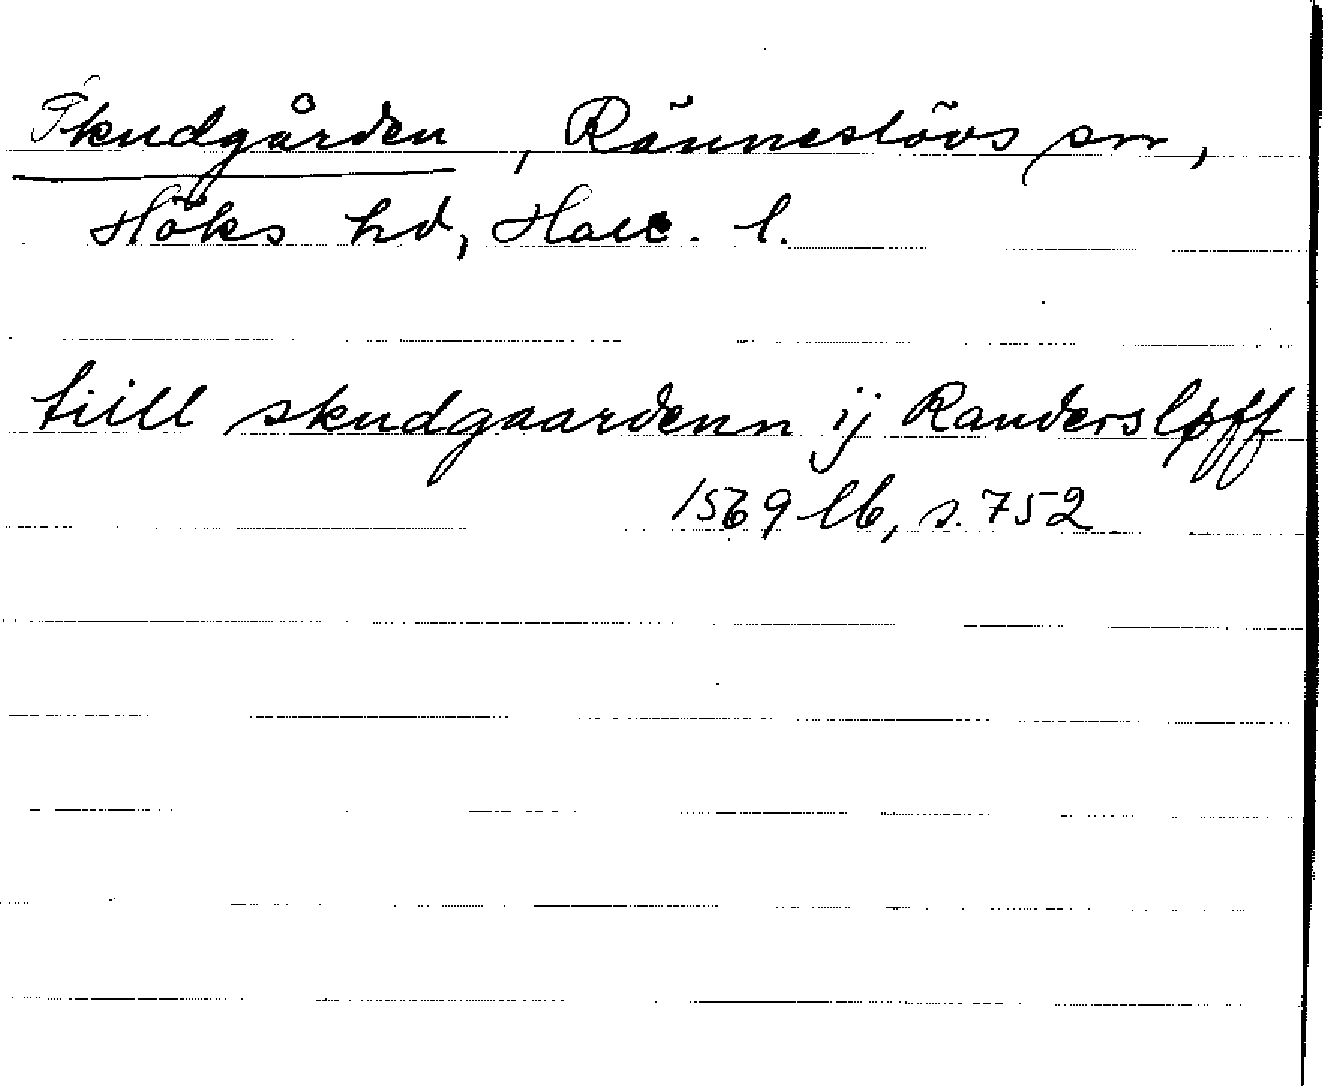 Skudgården, Ränneslövs sn,
Höks hd, Hall. l.
tiill skudgaardenn ij Randersløff
1569 lb, s. 752